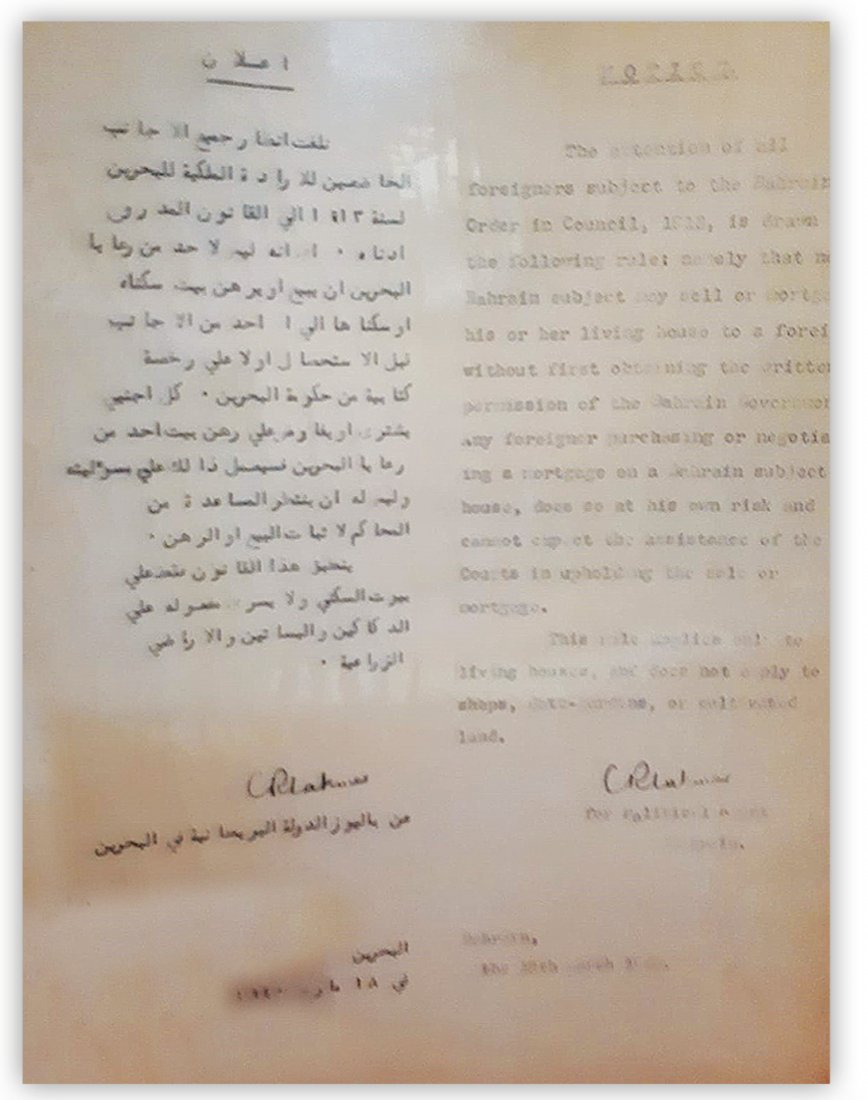 اعلان
تلفت انظار جميع الاجانب
الخاضعين للارادة الملكية للبحرين
لسنة ١٩١٣ الى القانون المدرون
ادناه ٠ انه ليس لاحد من رعايا
البحرين ان يبيع او يرهن بيت سكناه
او سكناها الي احد من الاجانب
قبل الاستحصال اولا علي رخصة
كتابية من حكومة البحرين ٠ كل اجنبي
يشترى او يفاوض علي رهن بيت احد من
رعايا البحرين فسيعمل ذالك علي مسؤليته
وليس له ان ينتظر المساعدة من
المحاكم لاثبات البيع او الرهن ٠
ينطبق هذا القانون فقط علي
بيوت السكني ولا يسرى مفعوله علي
الدكاكين والبساتين والاراضي
الزراعية ٠
عن باليوز الدولة البريطانية في البحرين
البحرين
في ١٨ مارس ١٩٤٠
NOTICE.
The attention of all
foreigners subject to the Bahrain
Order in Council, 1913, is drawn
the following rule: namely that no
Bahrain subject may sell or mortga
his or her living house to a forei
without first obtaining the written
permission of the Bahrain Governmen
any foreigner purchasing or negotia
ing a mortgage on a Bahrain subject
house, does so at his own risk and
cannot expect the assistance of the
Courts in upholding the sale or
mortgage.
This rule applies only to
living houses, and does not apply to
shops, date-gardens, or cultivated
land.
for Political Agent
Bahrain.
Bahrain,
the 18th March